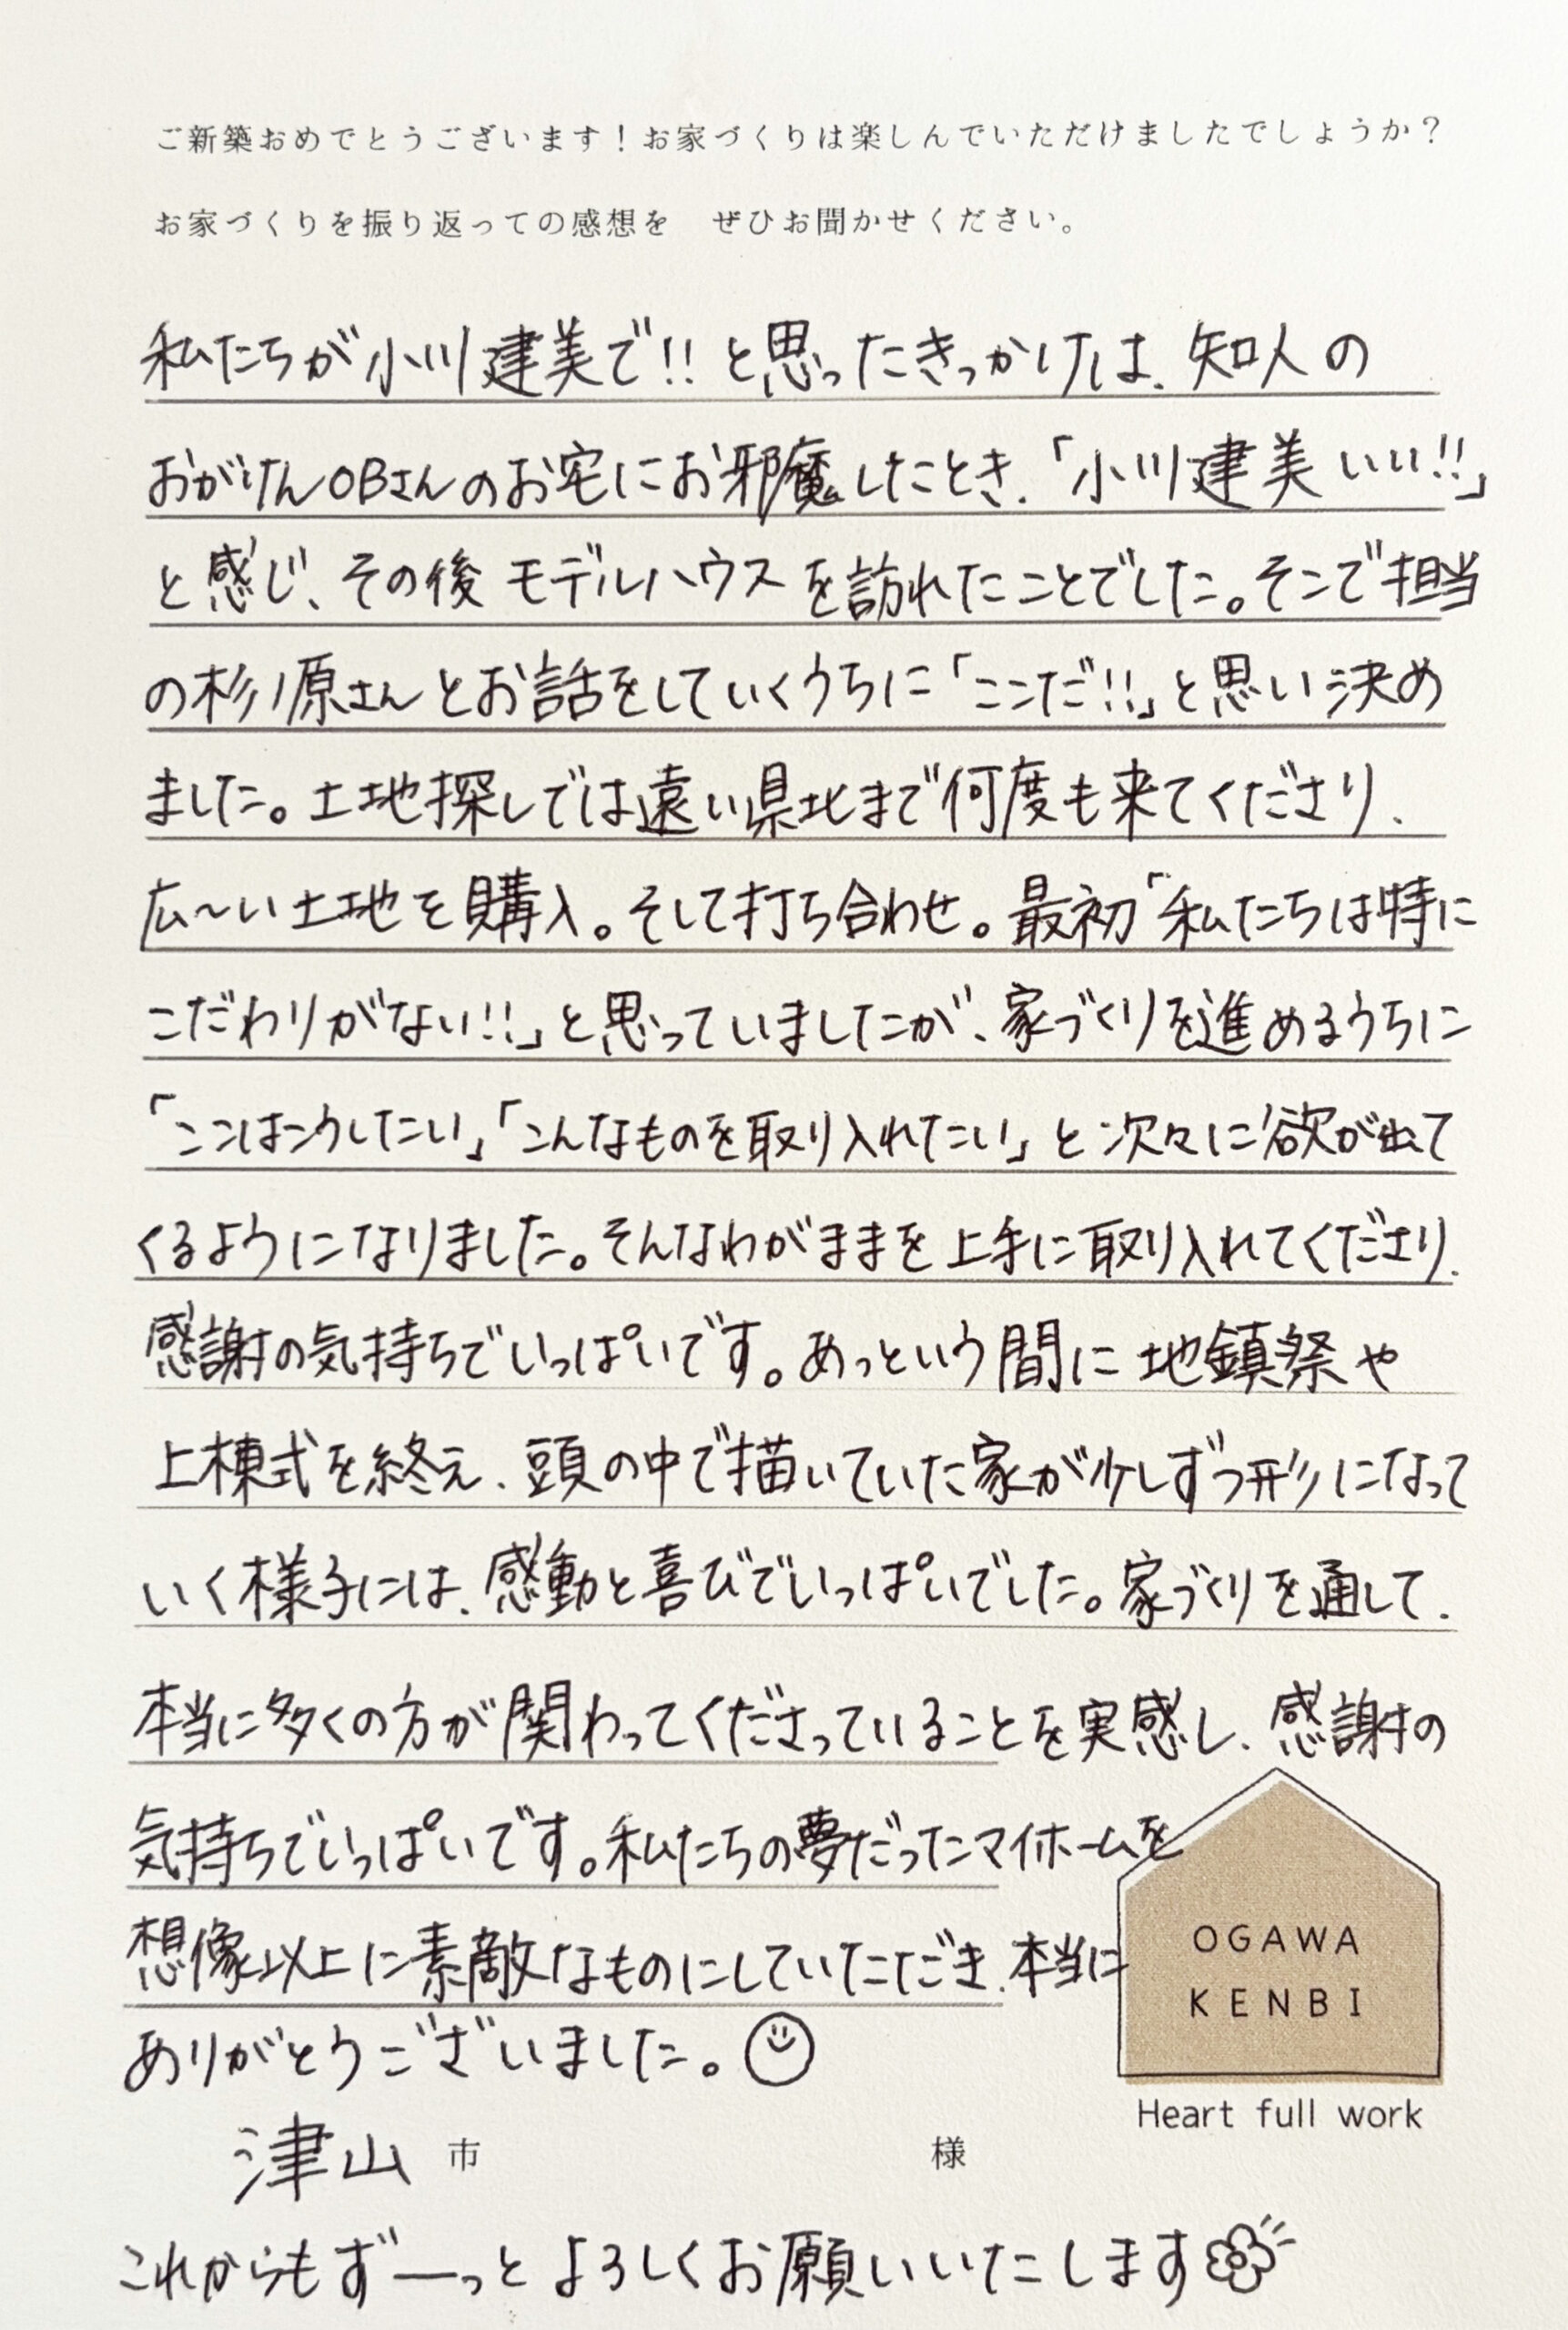 ご新築おめでとうございます！お家づくりは楽しんでいただけましたでしょうか？
お家づくりを振り返っての感想を　ぜひお聞かせください。
私たちが小川建美で!!と思ったきっかけは、知人の
おがけんOBさんのお宅にお邪魔したとき、「小川建美いい!!」
と感じ、その後モデルハウスを訪れたことでした。そこで担当
の杉ノ原さんとお話をしていくうちに「ここだ!!」と思い決め
ました。土地探しでは遠い県北まで何度も来てくださり、
広〜い土地を購入。そして打ち合わせ。最初「私たちは特に
こだわりがない!!」と思っていましたが、家づくりを進めるうちに
「ここはこうしたい」「こんなものを取り入れたい」と次々に欲が出て
くるようになりました。そんなわがままを上手に取り入れてくださり、
感謝の気持ちでいっぱいです。あっという間に地鎮祭や
上棟式を終え、頭の中で描いていた家が少しずつ形になって
いく様子には、感動と喜びでいっぱいでした。家づくりを通して、
本当に多くの方が関わってくださっていることを実感し、感謝の
気持ちでいっぱいです。私たちの夢だったマイホームを
想像以上に素敵なものにしていただき、本当に
ありがとうございました。
OGAWA
KENBI
Heart full work
津山市　様
これからもずーっとよろしくお願いいたします